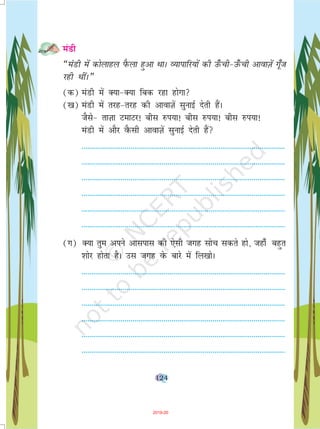 मंडी
“मंडी में कोलाहल फैला हुआ था। व्यापारियों की ऊँची-ऊँची आवाज़ें गूँज
रही थीं।”
(क) मंडी में क्या-क्या बिक रहा होगा?
(ख) मंडी में तरह-तरह की आवाज़ें सुनाई देती हैं।
जैसे- ताज़ा टमाटर! बीस रुपया! बीस रुपया! बीस रुपया!
मंडी में और कैसी आवाज़ें सुनाई देती हैं?
(ग) क्या तुम अपने आसपास की ऐसी जगह सोच सकते हो, जहाँ बहुत
शोर होता है। उस जगह के बारे में लिखो।
124
2019-20
© NCERT
not to be republished